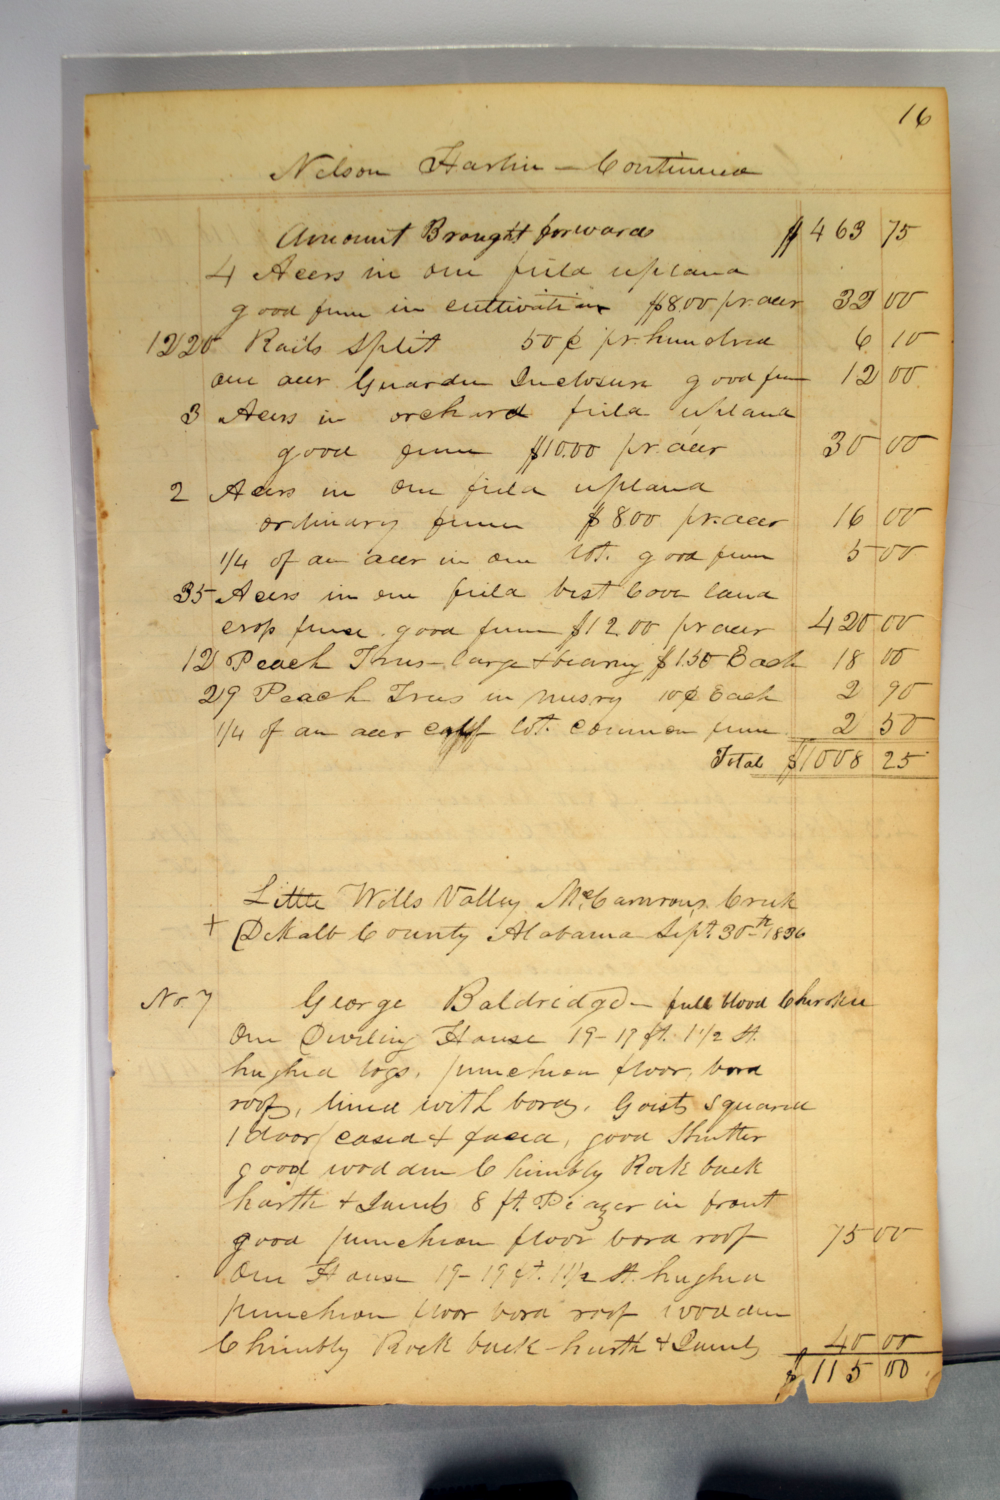 16
Nelson Harlin - Continued
Amount Brought forwards $ 463 75
4 Acers in one field upland
good fence in cultivation $8.00 pr. acer 32 00
1220 Rails Split 50¢ pr. hundred 6 10
one acer Guarden Inclosure good fence 12 00
3 Acers in orchard field upland
good fence $10.00 pr. acer 30 00
2 Acers in one field upland
ordinary fence $8.00 pr. acer 16 00
1/4 of an acer in one lot. good fence 5 00
35 Acers in one field best Cove land
crop fence. good fence $12.00 pr acer 420 00
12 Peach Trees - large & bearing $1.50 Each 18 00
29 Peach Trees in nusry 10¢ Each 2 90
1/4 of an acer calf lot. common fence 2 50
Total $1008 25
Little Wills Valley McCamrons Creek
+ DeKalb County Alabama Sept. 30th 1836
No 7 George Baldridge - full blood Cherokee
One Dwelling House 19-17 ft. 1 1/2 St.
hughed logs, punchion floor, bord
roof, lined with bords, Goists squared
1 door cased & faced, good Shutter
good wooden Chimbly Rock back
harth & Jambs 8 ft. Piazer in front
good punchion floor bord roof 75 00
One House 19-19 ft. 1 1/2 St. hughed
punchion floor bord roof wooden
Chimbly Rock back harth & Jambs 40 00
$ 115 00